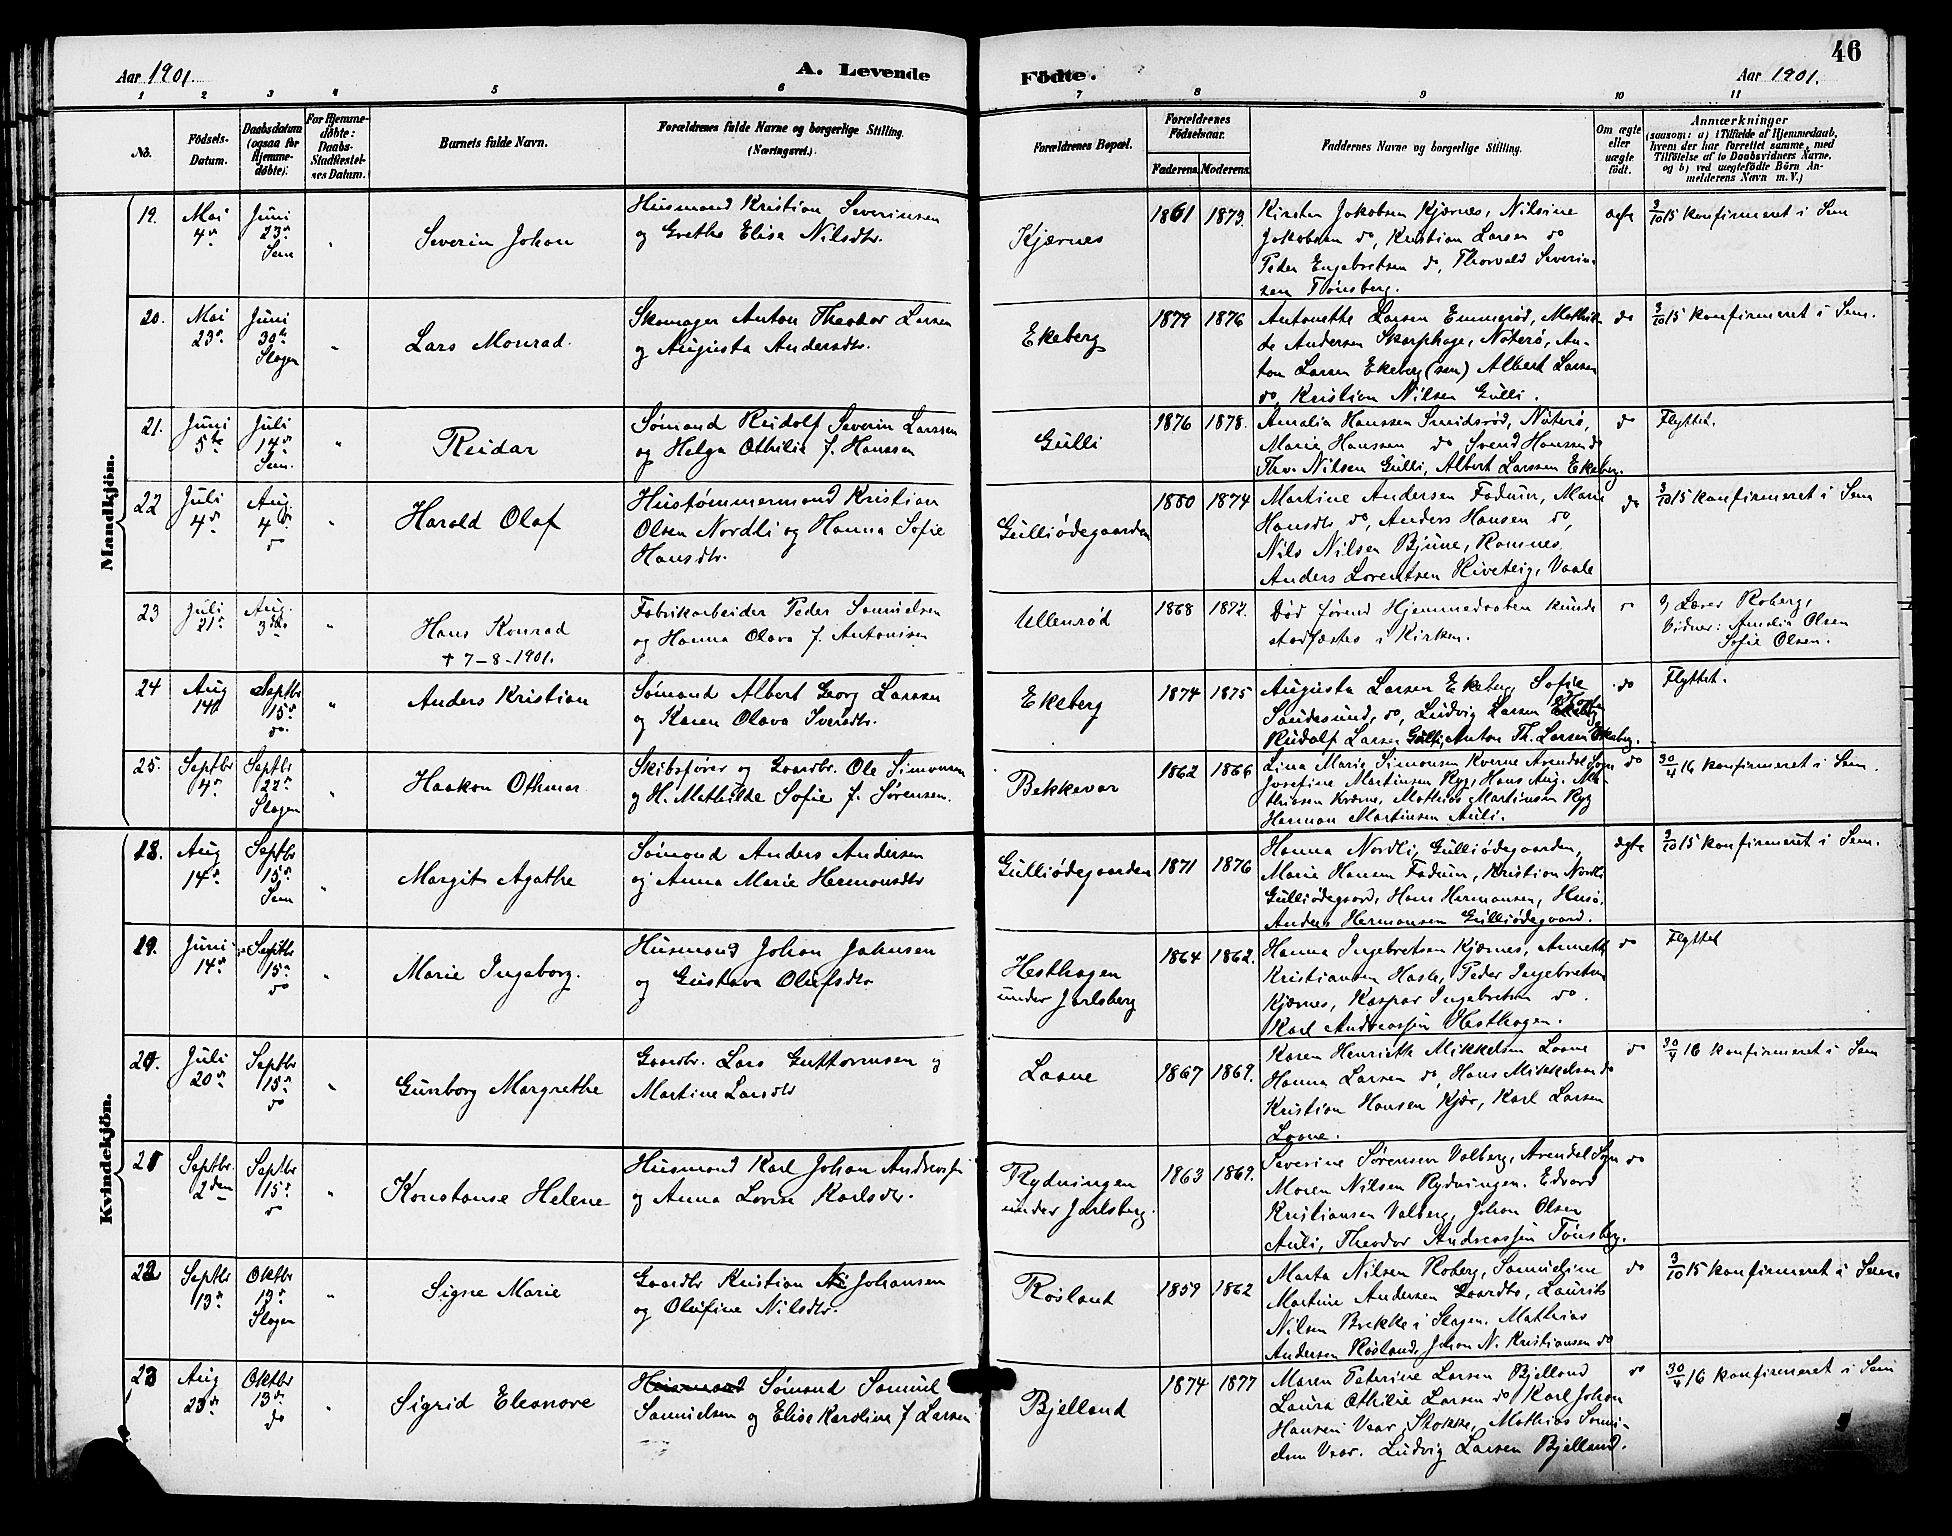 Aar 1901.
A. Levende
Födte.
46
Aar 1901.
1 2 3 4 5 6 7 8 9 10 11
No.
Fødsels-
Datum.
Daabsdatum
(ogsaa for
Hjemme-
døbte).
For Hjemme-
døbte:
Daabs-
Stadfæstel-
ses Datum.
Barnets fulde Navn.
Forældrenes fulde Navne og borgerlige Stilling.
(Næringsvei.)
Forældrenes Bopæl.
Forældrenes
Fødselsaar.
Faderens. Moderens.
Faddernes Navne og borgerlige Stilling.
Om ægte
eller
uægte
født.
Anmærkninger
(saasom: a) i Tilfælde af Hjemmedaab,
hvem der har forrettet samme, med
Tilføielse af to Daabsvidners Navne,
og b) ved uægtefødte Börn An-
melderens Navn m. V.)
Mandkjön.
19.
Mai
4de
Juni
23de
Sem
"
Severin Johan
Husmand Kristian Severinsen
og Grethe Elise Nilsdtr.
Kjærnes
1861
1873.
Kirsten Jakobsen Kjærnes, Nilsine
Jakobsen do, Kristian Larsen do
Peder Engebretsen do, Thorvald Severin-
sen Tønsberg.
ægte
3/10 15 konfirmeret i Sem
20.
Mai
23de
Juni
30te
Slagen
"
Lars Monrad.
Skomager Anton Theodor Larsen
og Augusta Andersdtr.
Ekeberg
1879
1876
Antonette Larsen Emmerød, Mathil-
de Andersen Skarphage, Nøterø, An-
ton Larsen Ekeberg (sen) Albert Larsen
do, Kristian Nilsen Gulli.
do
3/10 15 konfirmeret i Sem.
21.
Juni
5te
Juli
14de
Sem.
"
Reidar
Sømand Rudolf Severin Larssen
og Helga Othilie f. Hanssen
Gulli
1876
1878.
Amalia Hanssen Smidsrød, Nøterø,
Marie Hanssen do Svend Hanssen do
Thv. Nilsen Gulli, Albert Larssen Ekeberg.
do
Flyttet.
22
Juli
4de
Aug.
4de
do
"
Harald Olaf
Hustømmermand Kristian
Olsen Nordli og Hanna Sofie
Hansdtr.
Gulliødegaarden
1880
1874
Martine Andersen Fadum, Marie
Hansdtr do, Anders Hansen do,
Nils Nilsen Bjune, Ramnes,
Anders Lorentsen Hiveteig, Vaale
do
3/10 15 konfirmeret i Sem
23
Juli
21de
Aug.
"
Hans Konrad
† 7-8-1901.
Fabrikarbeider Peder Samuelsen
og Hanna Olava f. Antonisen
Ullenrød
1868
1872.
Død førend Hjemmedaaben kunde
stadfæstes i Kirken.
do
Lærer Roberg,
Vidner: Amalia Olsen
Sofie Olsen.
24
Aug
14de
Septbr
15de
do.
"
Anders Kristian
Sømand Albert Georg Larssen
og Karen Olava Iversdtr.
Ekeberg
1874
1875
Augusta Larsen Ekeberg Sofie
Sandesund, do, Ludvig Larsen
Rudolf Larsen Gulli, Anton Th. Larsen Ekeberg.
do
Flyttet.
25.
Septbr
4de
Septbr
22de
Slagen
"
Haakon Othmar
Skibsfører og Gaardbr. Ole Simonsen
og H. Mathilde Sofie f. Sørensen.
Bekkevar
1862
1866
Lina Marie Simonsen Kverne Arendal Sogn
Josefine Martinsen Ryg, Hans Aug. Ma-
thiesen Kverne, Mathias Martinsen Ryg
Herman Martinsen Auli.
do
30/4 16 konfirmeret i Sem.
Kvindekjön.
18.
Aug
14de
Septbr
15de
Sem
"
Margit Agathe
Sømand Anders Andersen
og Anna Marie Hermansdtr
Gulliødegaarden
1871
1876
Hanna Nordli, Gulliødegaarden,
Marie Hansen Fadum, Kristian Nordli
Gulliødegaard, Hans Hermansen, Husø,
Anders Hermansen Gulliødegaard.
ægte
3/10 15 konfirmeret i Sem.
19.
Juni
14de
Septbr
15de
do
"
Marie Ingeborg.
Husmand Johan Johnsen
og Gustava Olufsdtr
Hesthagen
under Jarlsberg
1864
1862.
Hanna Ingebretsen Kjærnes, Annette
Kristiansen Hasle, Peder Ingebretsen
Kjærnes, Kaspar Ingebretsen do.
Karl Andreassen Hesthagen.
do
Flyttet
20.
Juli
20de
Septbr
15de
do
"
Gunborg Margrethe
Gaardbr. Lars Guttormsen og
Martine Larsdtr
Laane
1867
1869.
Karen Henriette Mikkelsen Laane
Hanna Larsen do, Hans Mikkelsen do
Kristian Hansen Kjær, Karl Larsen
Laane.
do
30/4 16 konfirmeret i Sem
21
Septbr.
2den
Septbr
15de
do
"
Konstanse Helene
Husmand Karl Johan Andreassen
og Anna Lovise Karlsdtr.
Rydningen
under Jarlsberg.
1863
1869.
Severine Sørensen Valberg, Arendal Sogn
Maren Nilsen Rydningen. Edvard
Kristiansen Valberg, Johan Olsen
Auli, Theodor Andreassen Tønsberg.
do
22
Septbr
13de
Oktbr
13de
Slagen
"
Signe Marie
Gaardbr Kristian Johansen
og Olufine Nilsdtr.
Røsland
1859
1862
Marta Nilsen Roberg, Samueline
Martine Andersen Laurits
Nilsen Brekke i Slagen. Mathias
Andersen Røsland, Johan N. Kristiansen do
do
3/10 15 konfirmeret i Sem
23
Aug
23de
Oktbr
13de
do
"
Sigrid Eleonore
Husmand Sømand Samuel
Samuelsen og Elise Karoline f Larsen
Bjelland
1874
1877
Maren Paterine Larsen Bjelland
Laura Othilie Larsen do, Karl Johan
Hansen Vaar, Stokke, Mathias Samu-
elsen Vaar. Ludvig Larsen Bjelland.
do
30/4 16 konfirmeret i Sem